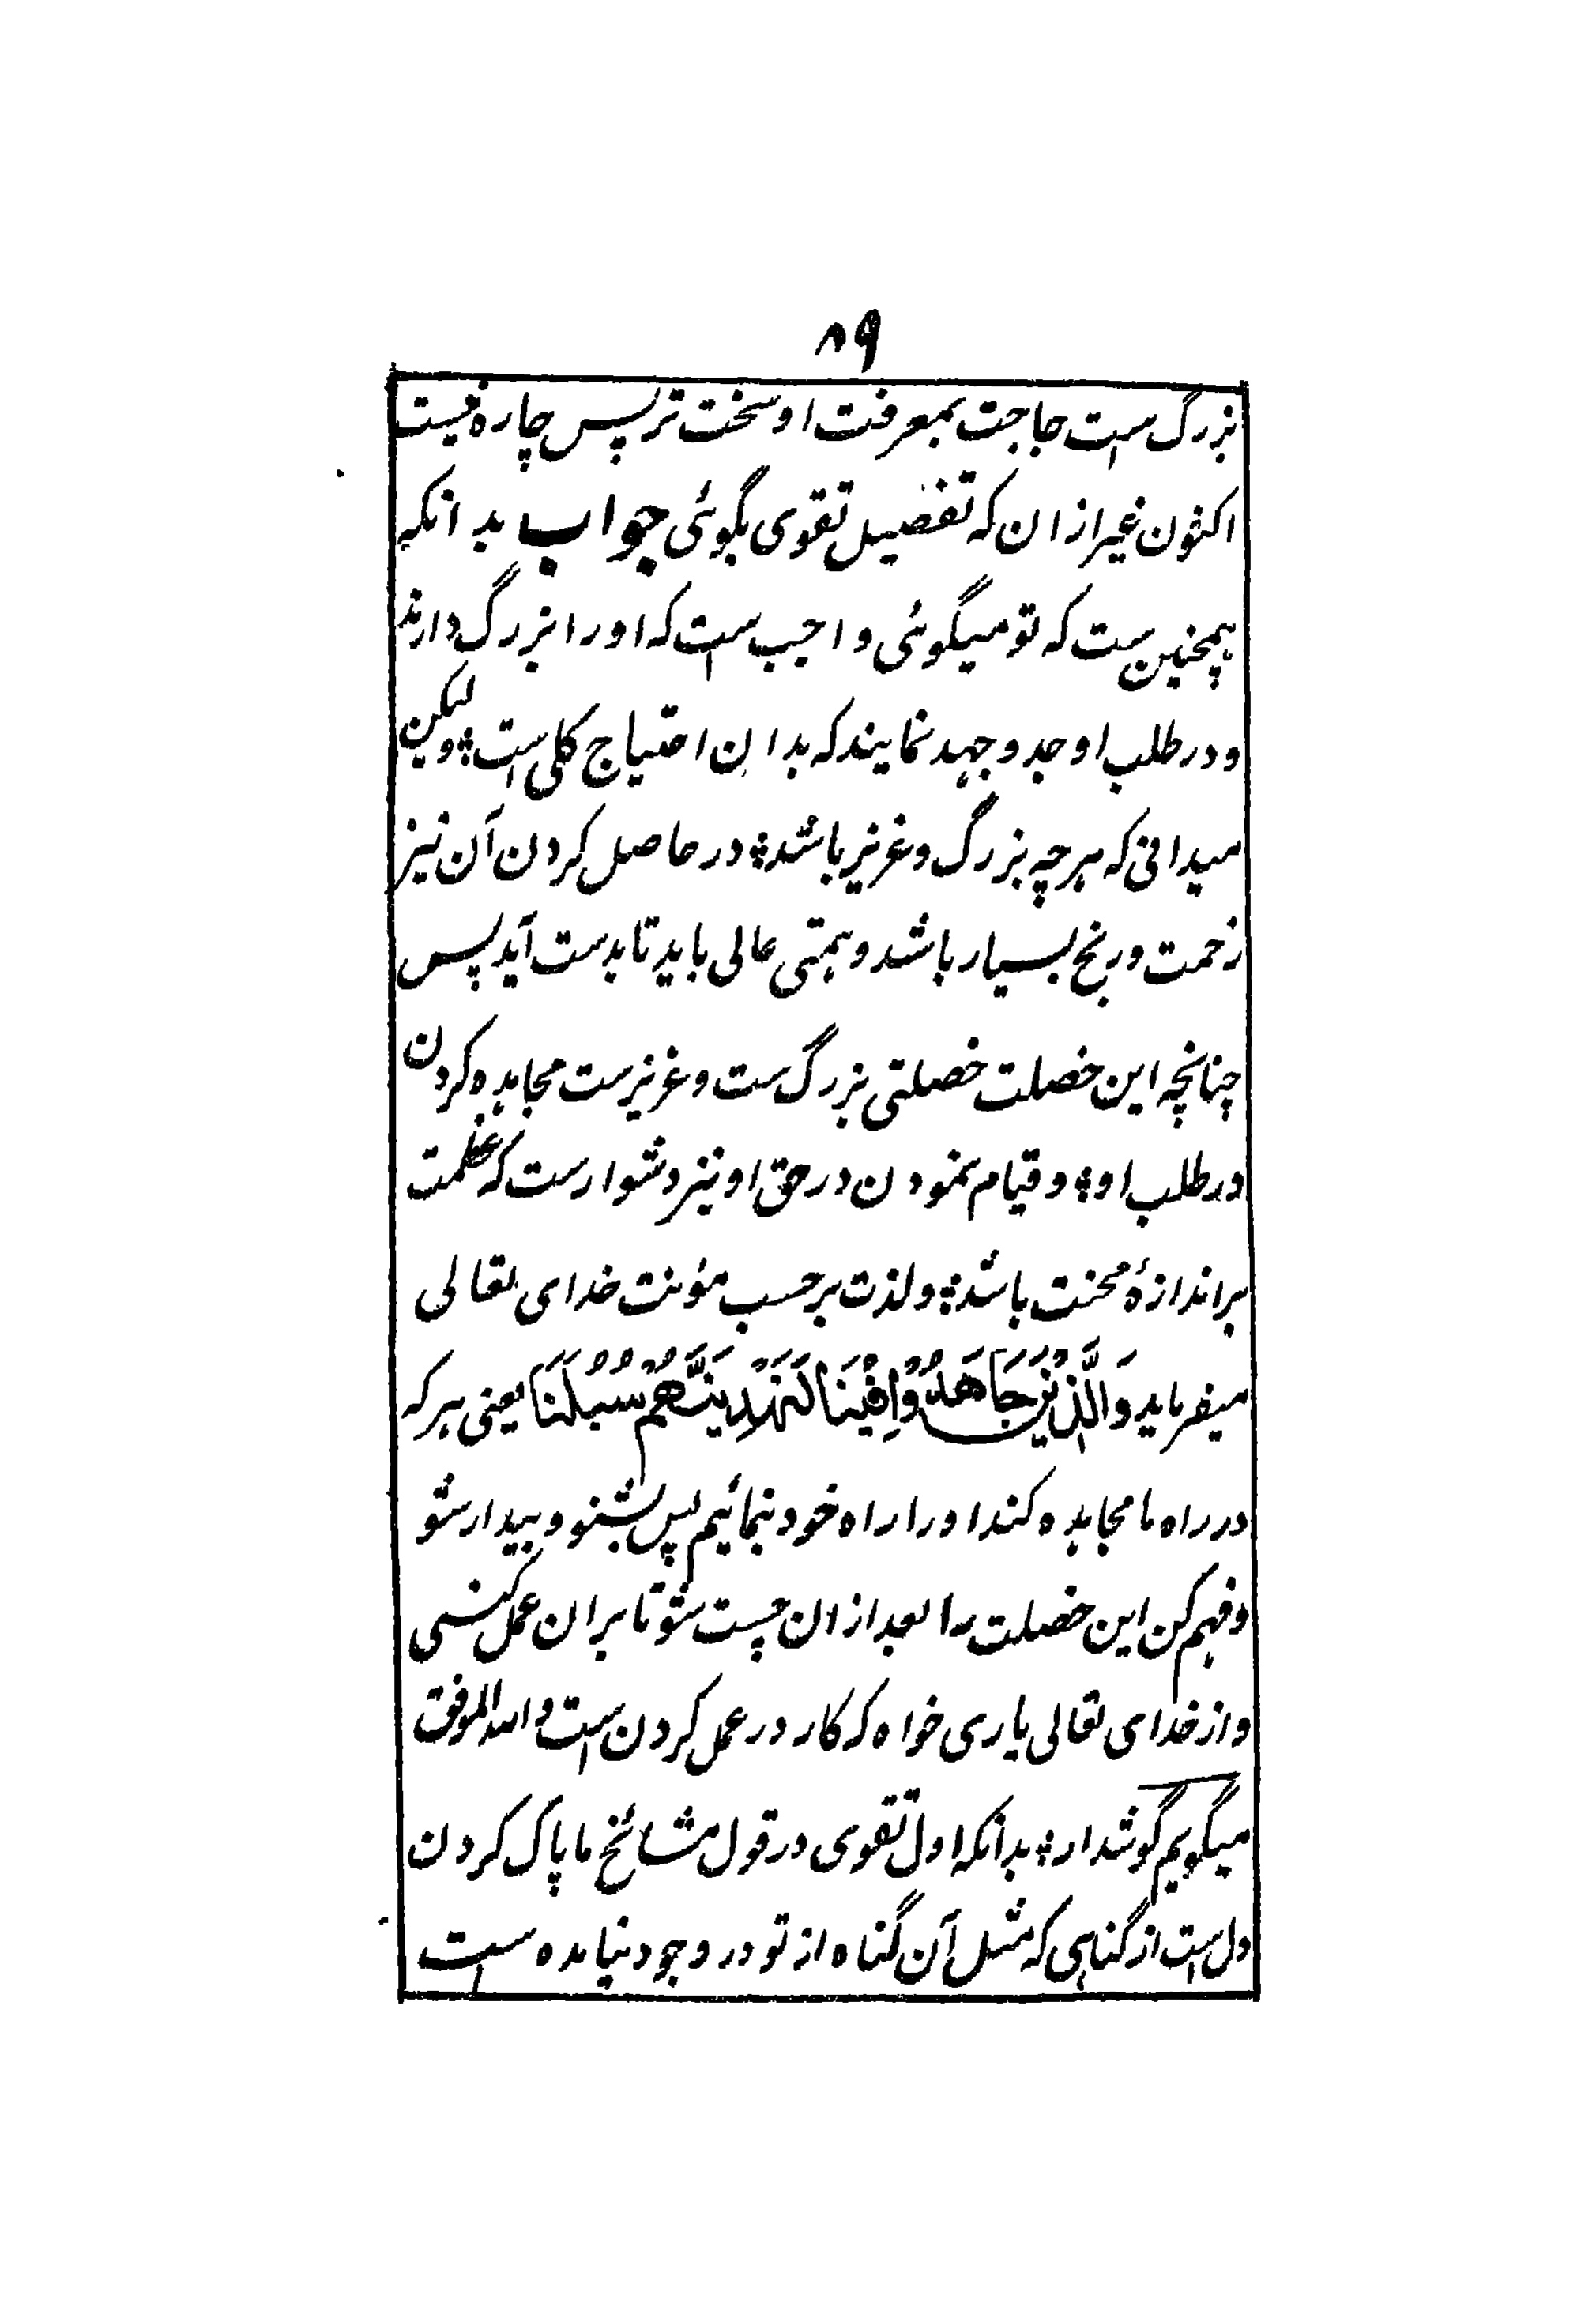 ۸۹
بزرگ است حاجت بمعرفت او سخت تر پس چاره نیست
اکنون غیر ازان که تفضیل تقوی بگوئی جواب بدانکه
همچنین ست که تو میگوئی واجب است که او را بزرگ دارند
و در طلب او جد و جهد نمایند که بدان احتیاج کلی است؛ ولیکن
میدانی که هرچه بزرگ و عزیز باشد؛ در حاصل کردن آن نیز
زحمت و رنج بسیار باشد و همتی عالی باید تا بدست آید پس
چنانچه این خصلت خصلتی بزرگ ست و عزیز ست مجاهده کردن
در طلب او؛ و قیام نمودن در حق او نیز دشوار ست که عظمت
براندازهٔ محنت باشد؛ و لذت برحسب مؤنت خدای تعالی
میفرماید وَالَّذِیْنَ جَاهَدُوْا فِیْنَا لَنَهْدِیَنَّهُمْ سُبُلَنَا یعنی هر که
در راه ما مجاهده کند او را راه خود بنمائیم پس بشنو و بیدار شو
و فهم کن این خصلت را بعد ازان چست شو تا بران عمل کنی
و از خدای تعالی یاری خواه که کار در عمل کردن است والله الموفق
میگویم گوشدار؛ بدانکه اول تقوی در قول مشائخ ما پاک کردن
دل است از گناهی که مثل آن گناه از تو در وجود نیامده است